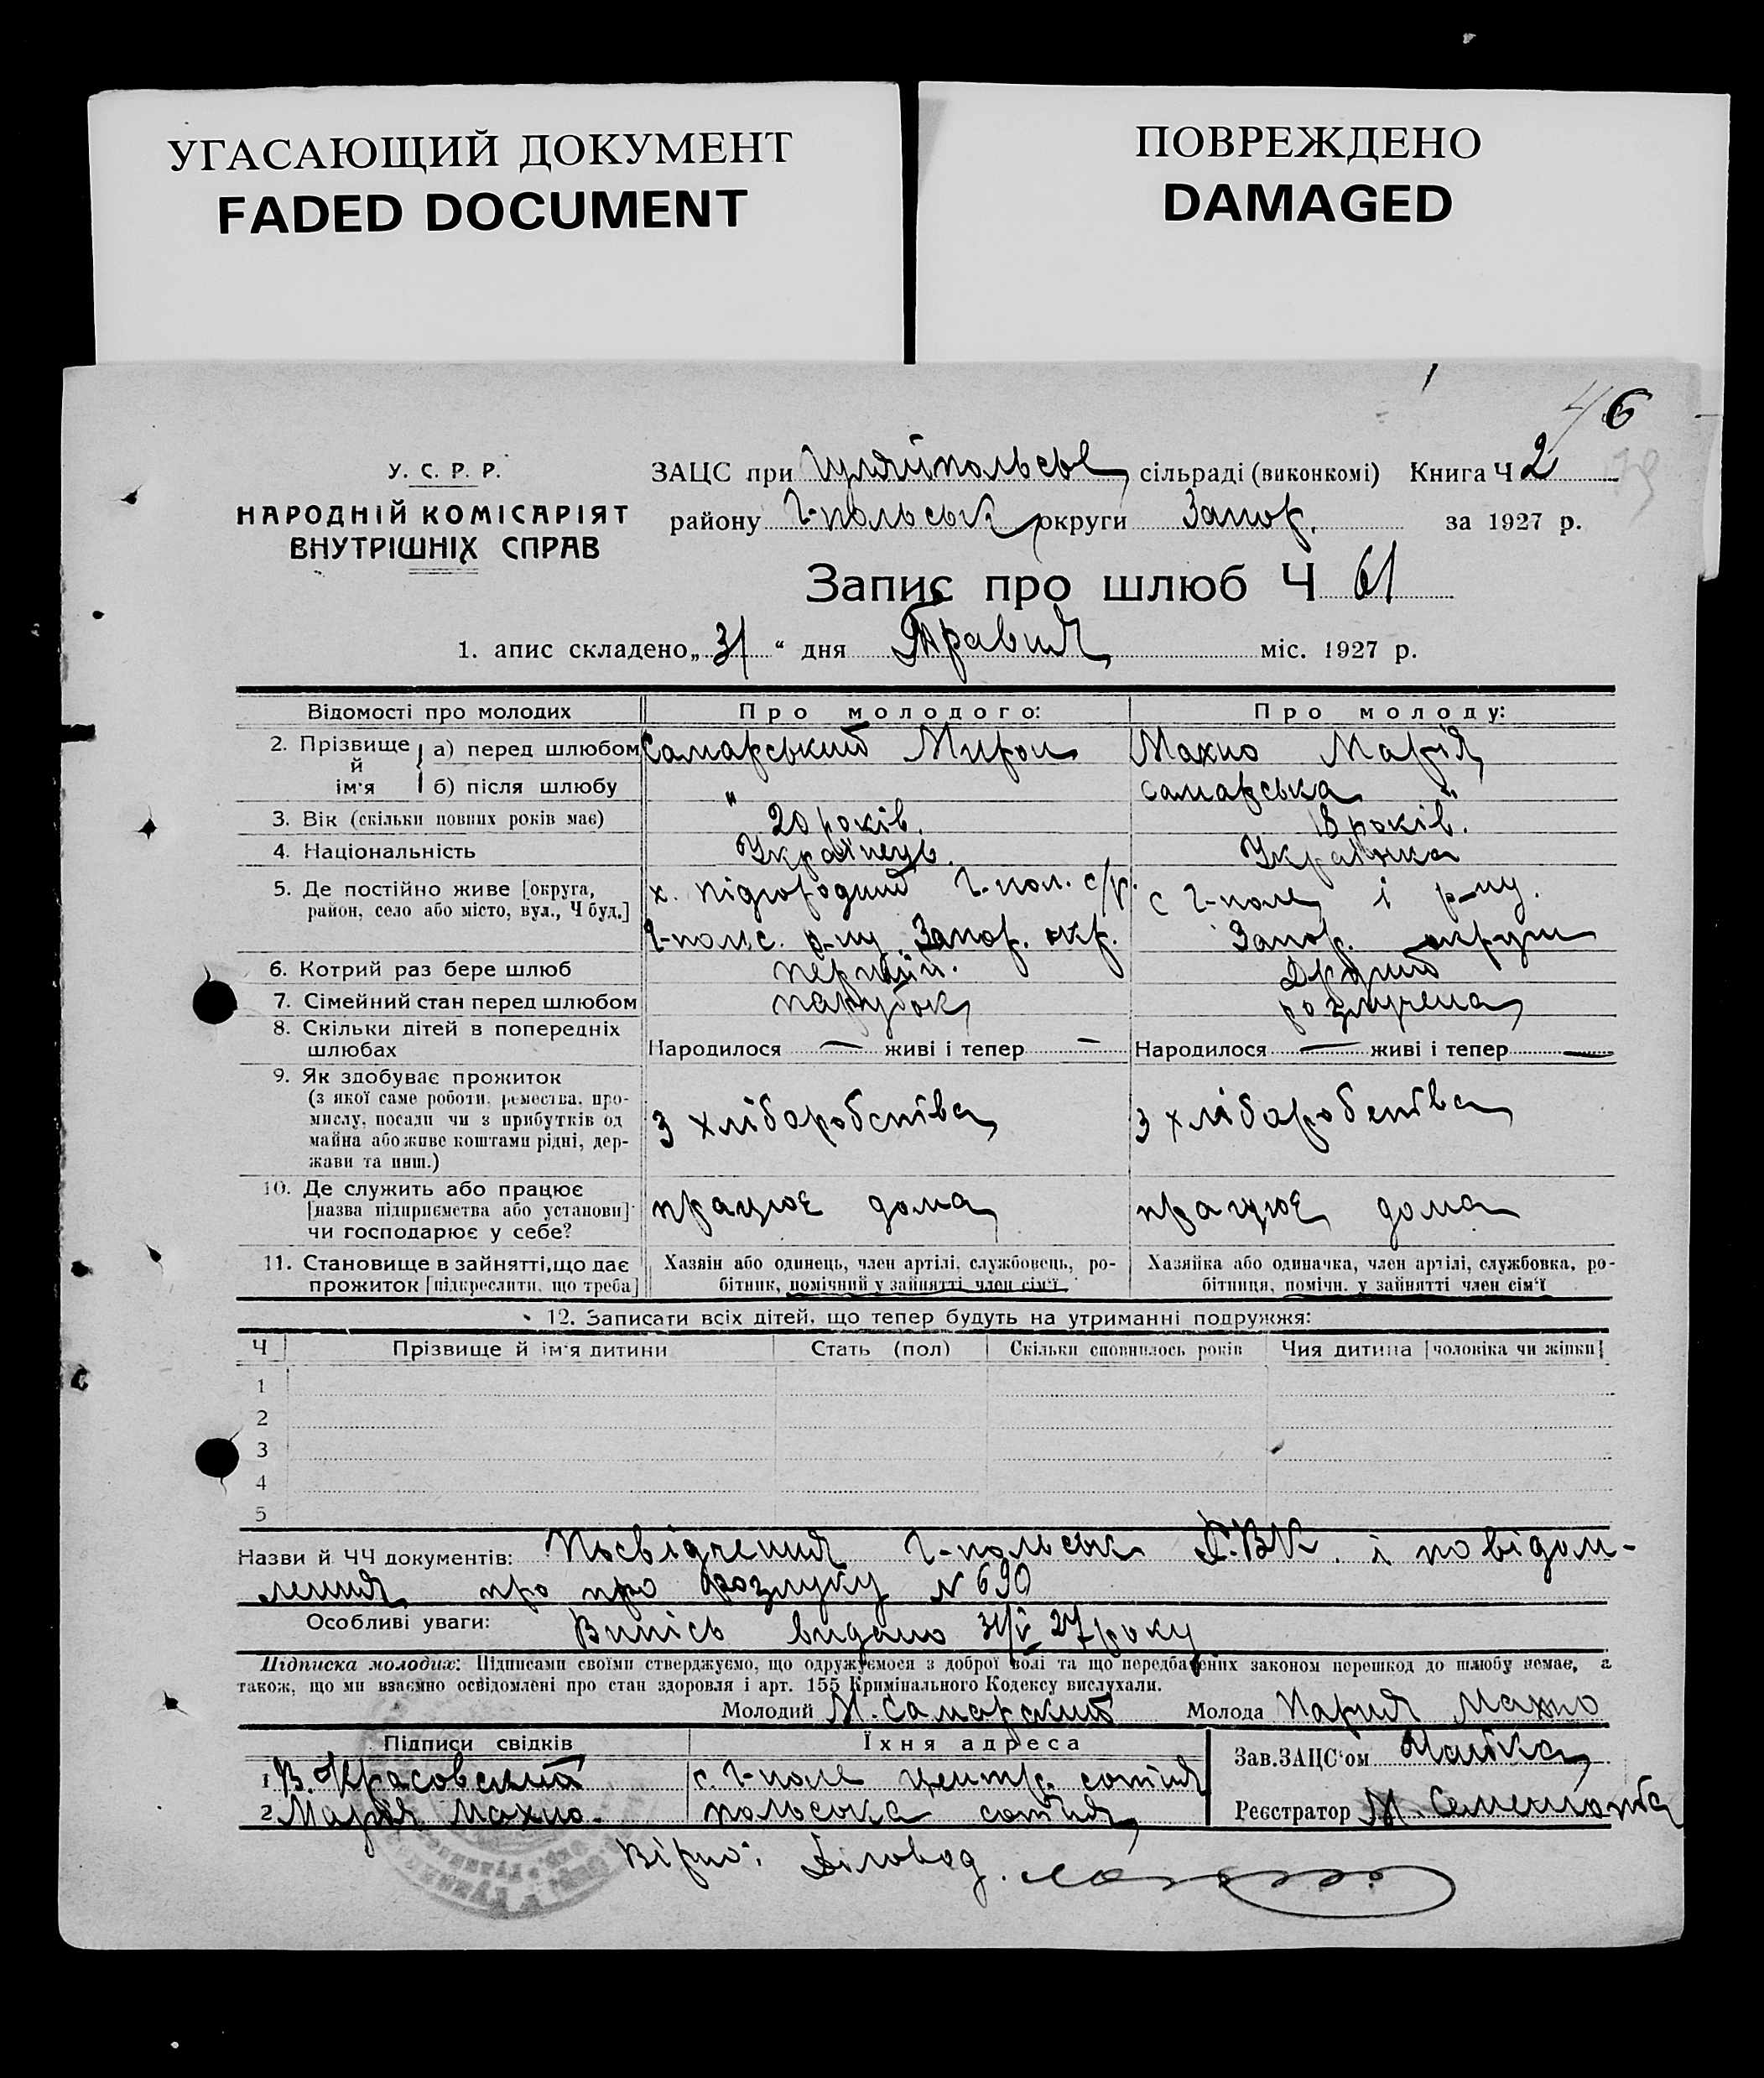 УГАСАЮЩИЙ ДОКУМЕНТ
FADED DOCUMENT
ПОВРЕЖДЕНО
DAMAGED
6
У. С. Р. Р.
НАРОДНІЙ КОМІСАРІЯТ
ВНУТРІШНІХ СПРАВ
ЗАЦС при Гуляйпольськ сільраді (виконкомі) Книга Ч 2
району Г-польськ округи Запор. за 1927 р.
Запис про шлюб Ч 61
1. апис складено „ 31 “ дня Травня міс. 1927 р.
Відомості про молодих Про молодого: Про молоду:
2. Прізвище й ім'я а) перед шлюбом Самарський Мирон Махно Марія
б) після шлюбу " самарська "
3. Вік (скільки повних років має) 20 років. 18 років.
4. Національність Українець. Українка
5. Де постійно живе [округа, х. підгородний Г-пол. с/р. с Г-поле і р-ну.
район, село або місто, вул., Ч буд.] Г-польс. р-ну Запор. окр. Запор. округи
6. Котрий раз бере шлюб перший. Другий
7. Сімейний стан перед шлюбом парубок розлучена
8. Скільки дітей в попередніх
шлюбах Народилося — живі і тепер — Народилося — живі і тепер —
9. Як здобуває прожиток
(з якої саме роботи, ремества, про-
мислу, посади чи з прибутків од з хліборобства з хліборобства
майна або живе коштами рідні, дер-
жави та инш.)
10. Де служить або працює
[назва підприємства або установи] працює дома працює дома
чи господарює у себе?
11. Становище в зайнятті, що дає Хазяїн або одинець, член артілі, службовець, ро- Хазяйка або одиначка, член артілі, службовка, ро-
прожиток [підкреслити, що треба] бітник, помічний у зайнятті член сім'ї бітниця, помічн. у зайнятті член сім'ї
12. Записати всіх дітей, що тепер будуть на утриманні подружжя:
Ч Прізвище й ім'я дитини Стать (пол) Скільки сповнилось років Чия дитина [чоловіка чи жінки]
1
2
3
4
5
Назви й ЧЧ документів: Посвідчення Г-польськ Р.В.К. і повідом-
лення про про розлуку № 690
Особливі уваги: Випісь видано 31/V 27 року
Підписка молодих: Підписами своїми стверджуємо, що одружуємося з доброї волі та що передбачених законом перешкод до шлюбу немає, а
також, що ми взаємно освідомлені про стан здоровля і арт. 155 Кримінального Кодексу вислухали.
Молодий М. Самарский Молода Мария Махно
Підписи свідків Їхня адреса Зав. ЗАЦС'ом
1 В. Красовский с. Г-поле центр. сотня
2. Марія Махно. польська сотня Реєстратор М.
Вірно: Діловод.